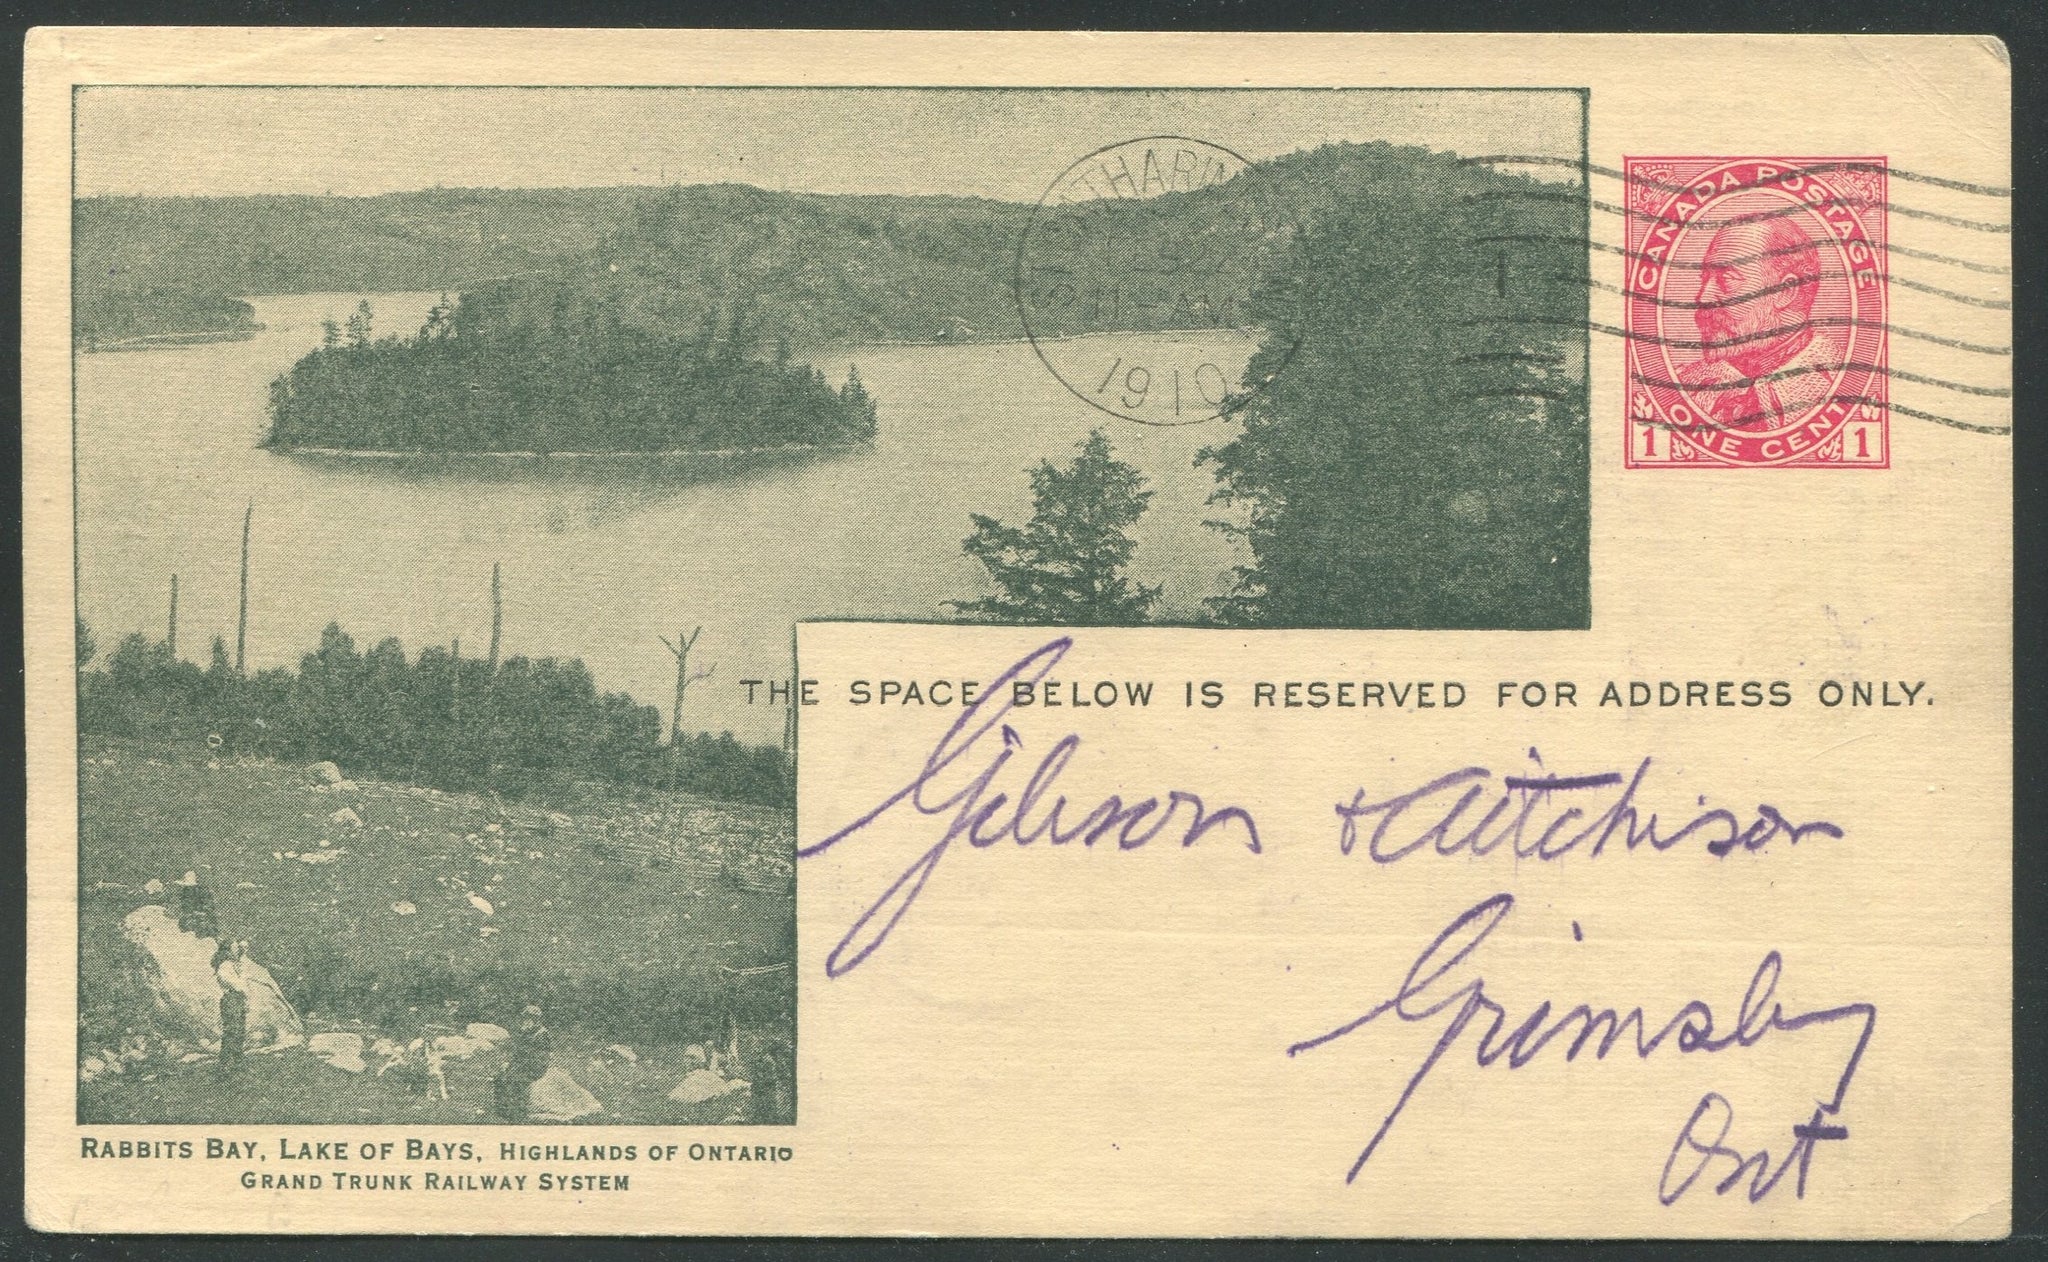 CANADA POSTAGE
ONE CENT
1 1
1910
THE SPACE BELOW IS RESERVED FOR ADDRESS ONLY.
Gibson & Aitchison
Grimsby
Ont
RABBITS BAY, LAKE OF BAYS, HIGHLANDS OF ONTARIO
GRAND TRUNK RAILWAY SYSTEM